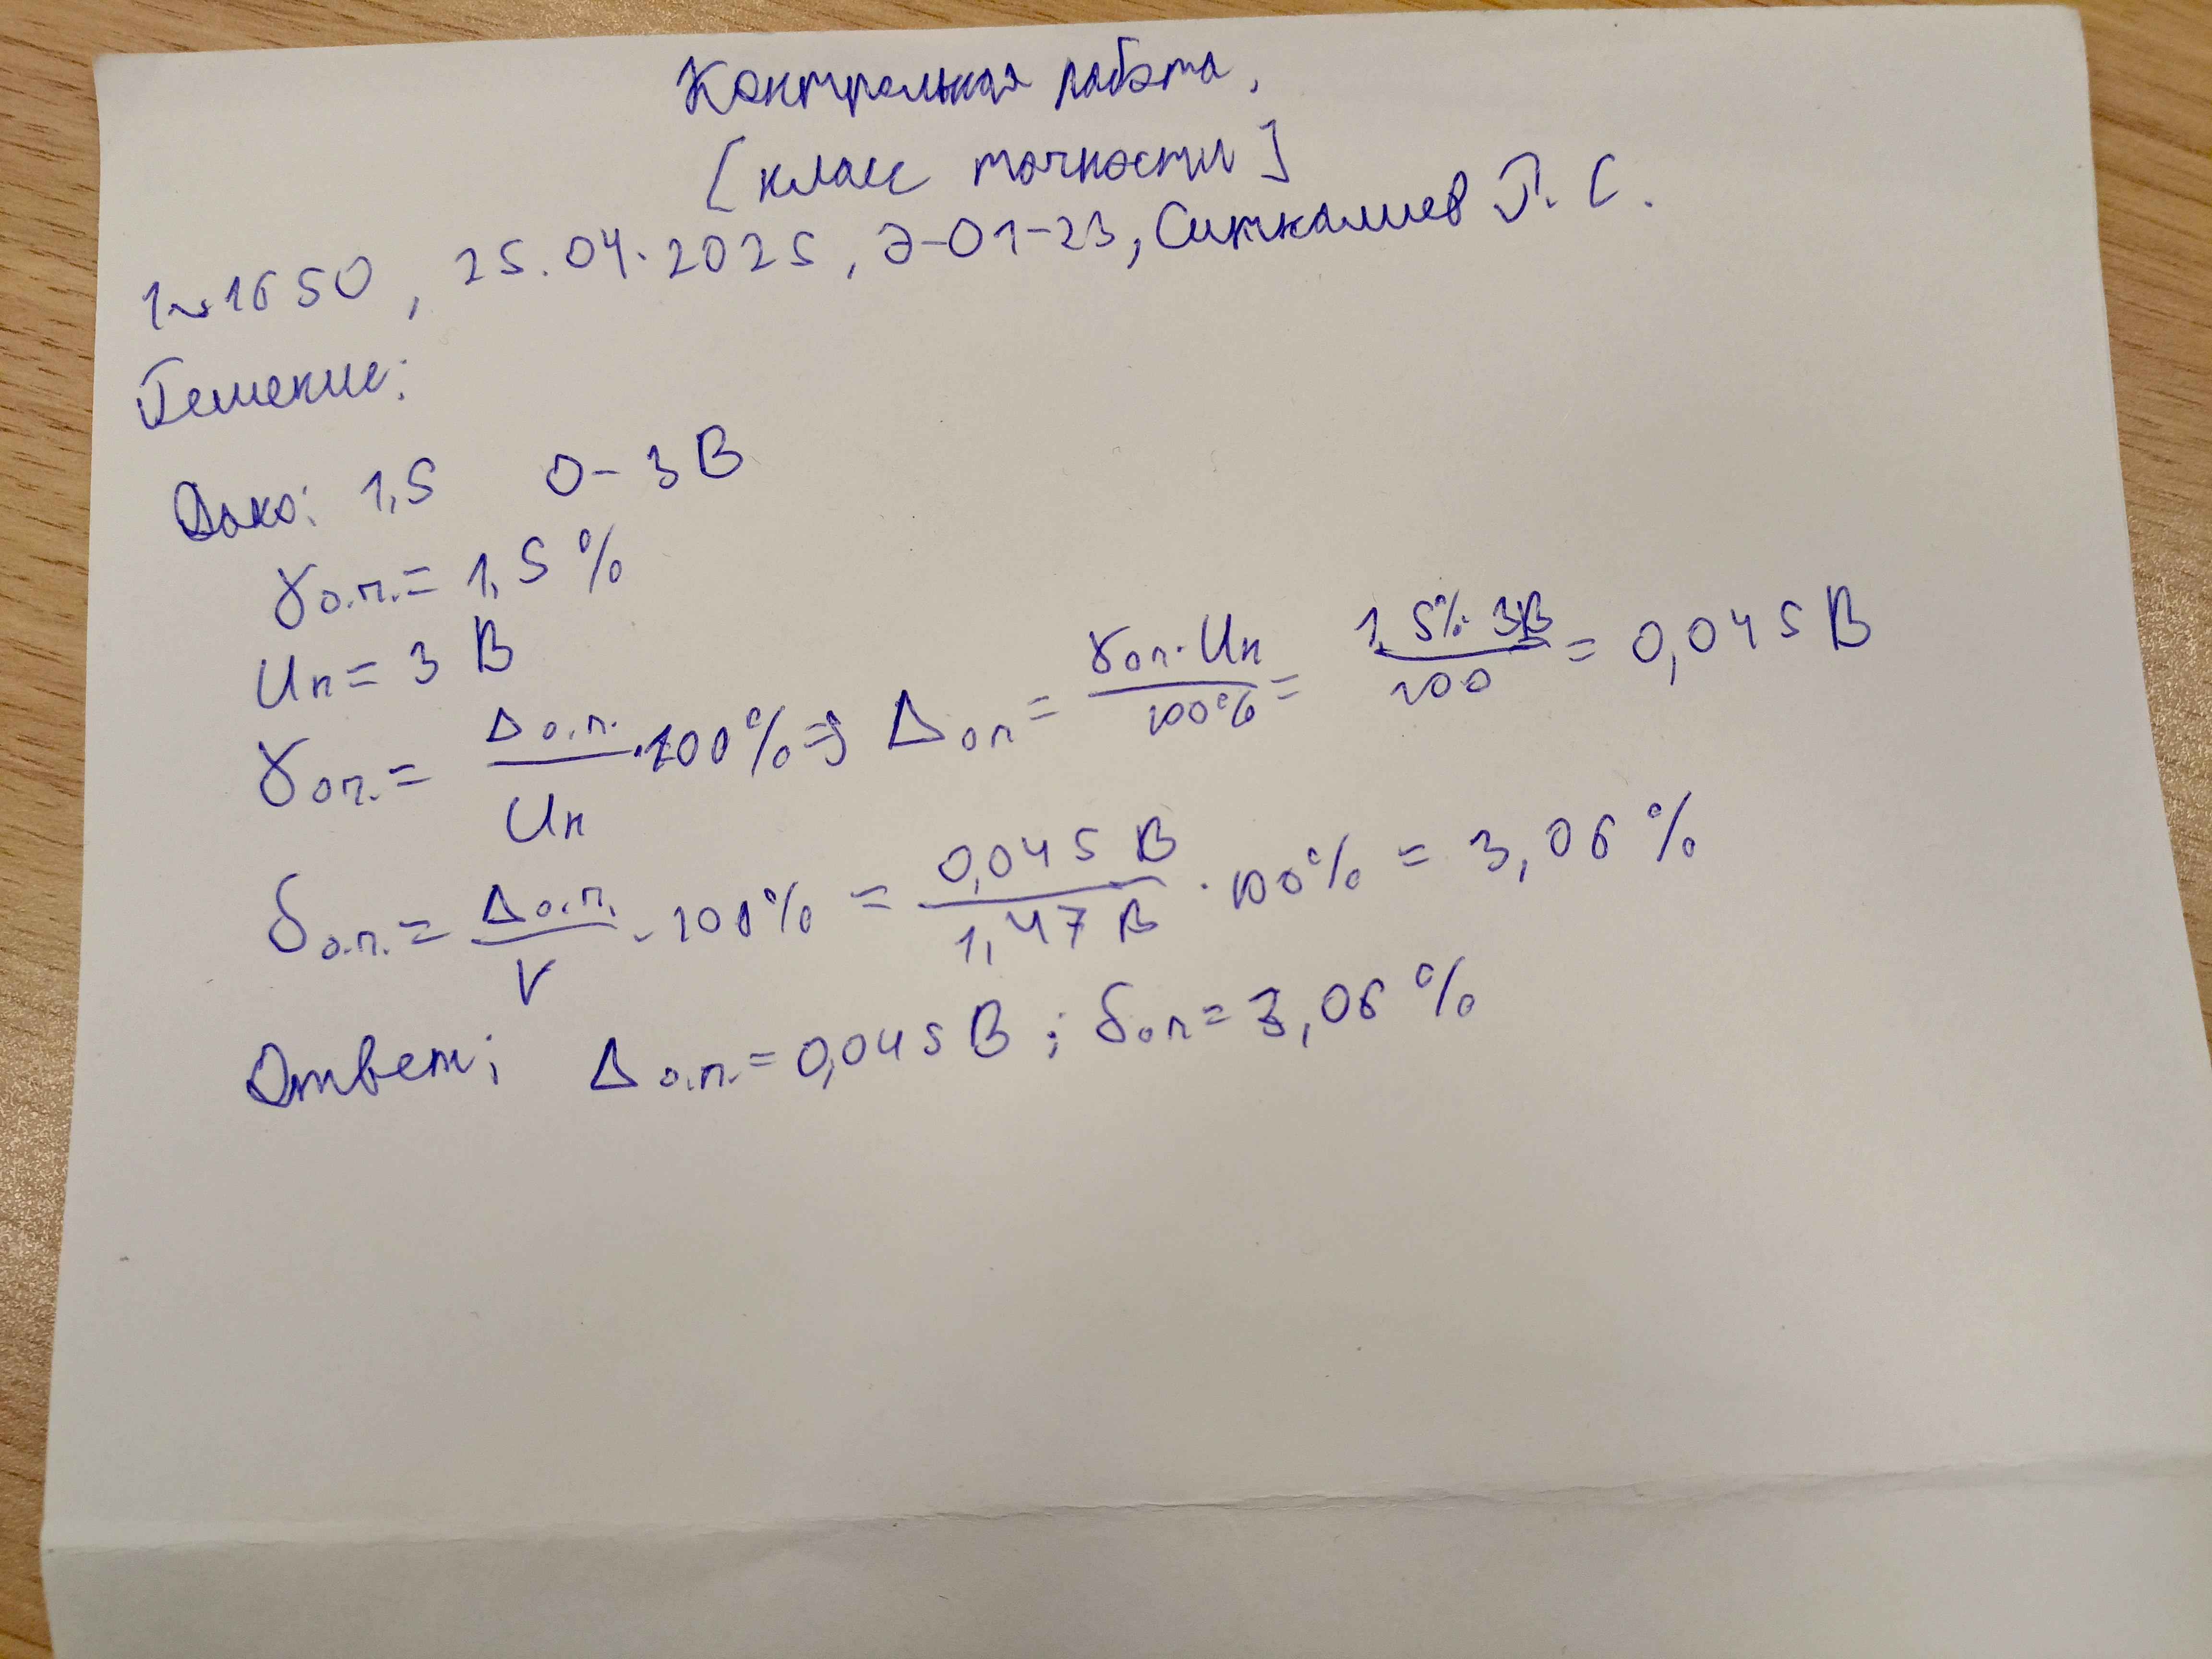 Контрольная работа.
[класс точности]
1~1650, 25.04.2025, Э-01-23, Ситкалиев Т. С.
Решение:
Дано: 1,5 0-3 В
γо.п. = 1,5 %
Uн = 3 В
γоп. = Δо.п. / Uн · 100% => Δоп = γоп · Uн / 100% = 1,5% · 3В / 100 = 0,045 В
δо.п. = Δо.п. / V · 100% = 0,045 В / 1,47 В · 100% = 3,06 %
Ответ: Δо.п. = 0,045 В ; δоп = 3,06 %